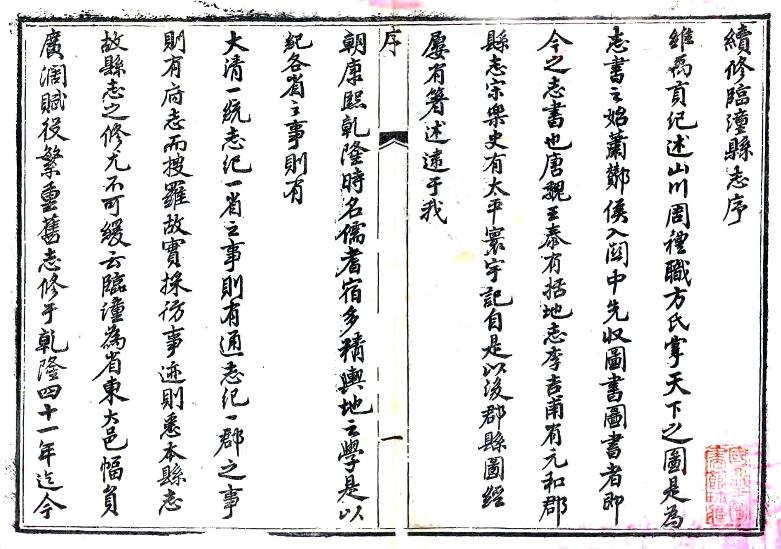 續修臨潼縣志序
維禹貢紀述山川周禮職方氏掌天下之圖是為
志書之始蕭酇侯入關中先收圖書圖書者即
今之志書也唐魏王泰有括地志李吉甫有元和郡
縣志宗樂史有太平寰宇記自是以後郡縣圖經
屢有箸述逮于我
序
一
朝康熙乾隆時名儒耆宿多精輿地之學是以
紀各省之事則有
大清一統志紀一省之事則有通志紀一郡之事
則有府志而搜羅故實採彷事迹則悉本縣志
故縣志之修尤不可緩云臨潼為省東大邑幅員
廣濶賦役繁重舊志修于乾隆四十一年迄今